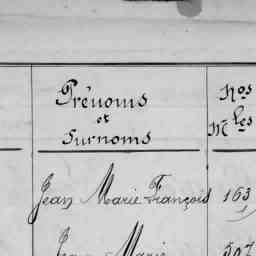 Prénoms
et
Surnoms
Nos
Mles
Jean Marie François 163
Jean Marie 507